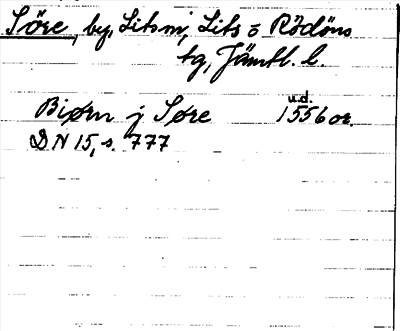 Söre, by, Lits sn, Lits o Rödöns
tg, Jämtl. l.
u.d.
Biørn j Søre 1556 or.
DN 15, s. 777